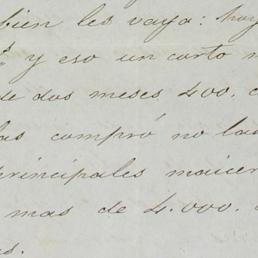 bien les vaya: hoy
y eso un corto
de dos meses 400.
las compró no la
principales maicer
mas de 4.000.
s.